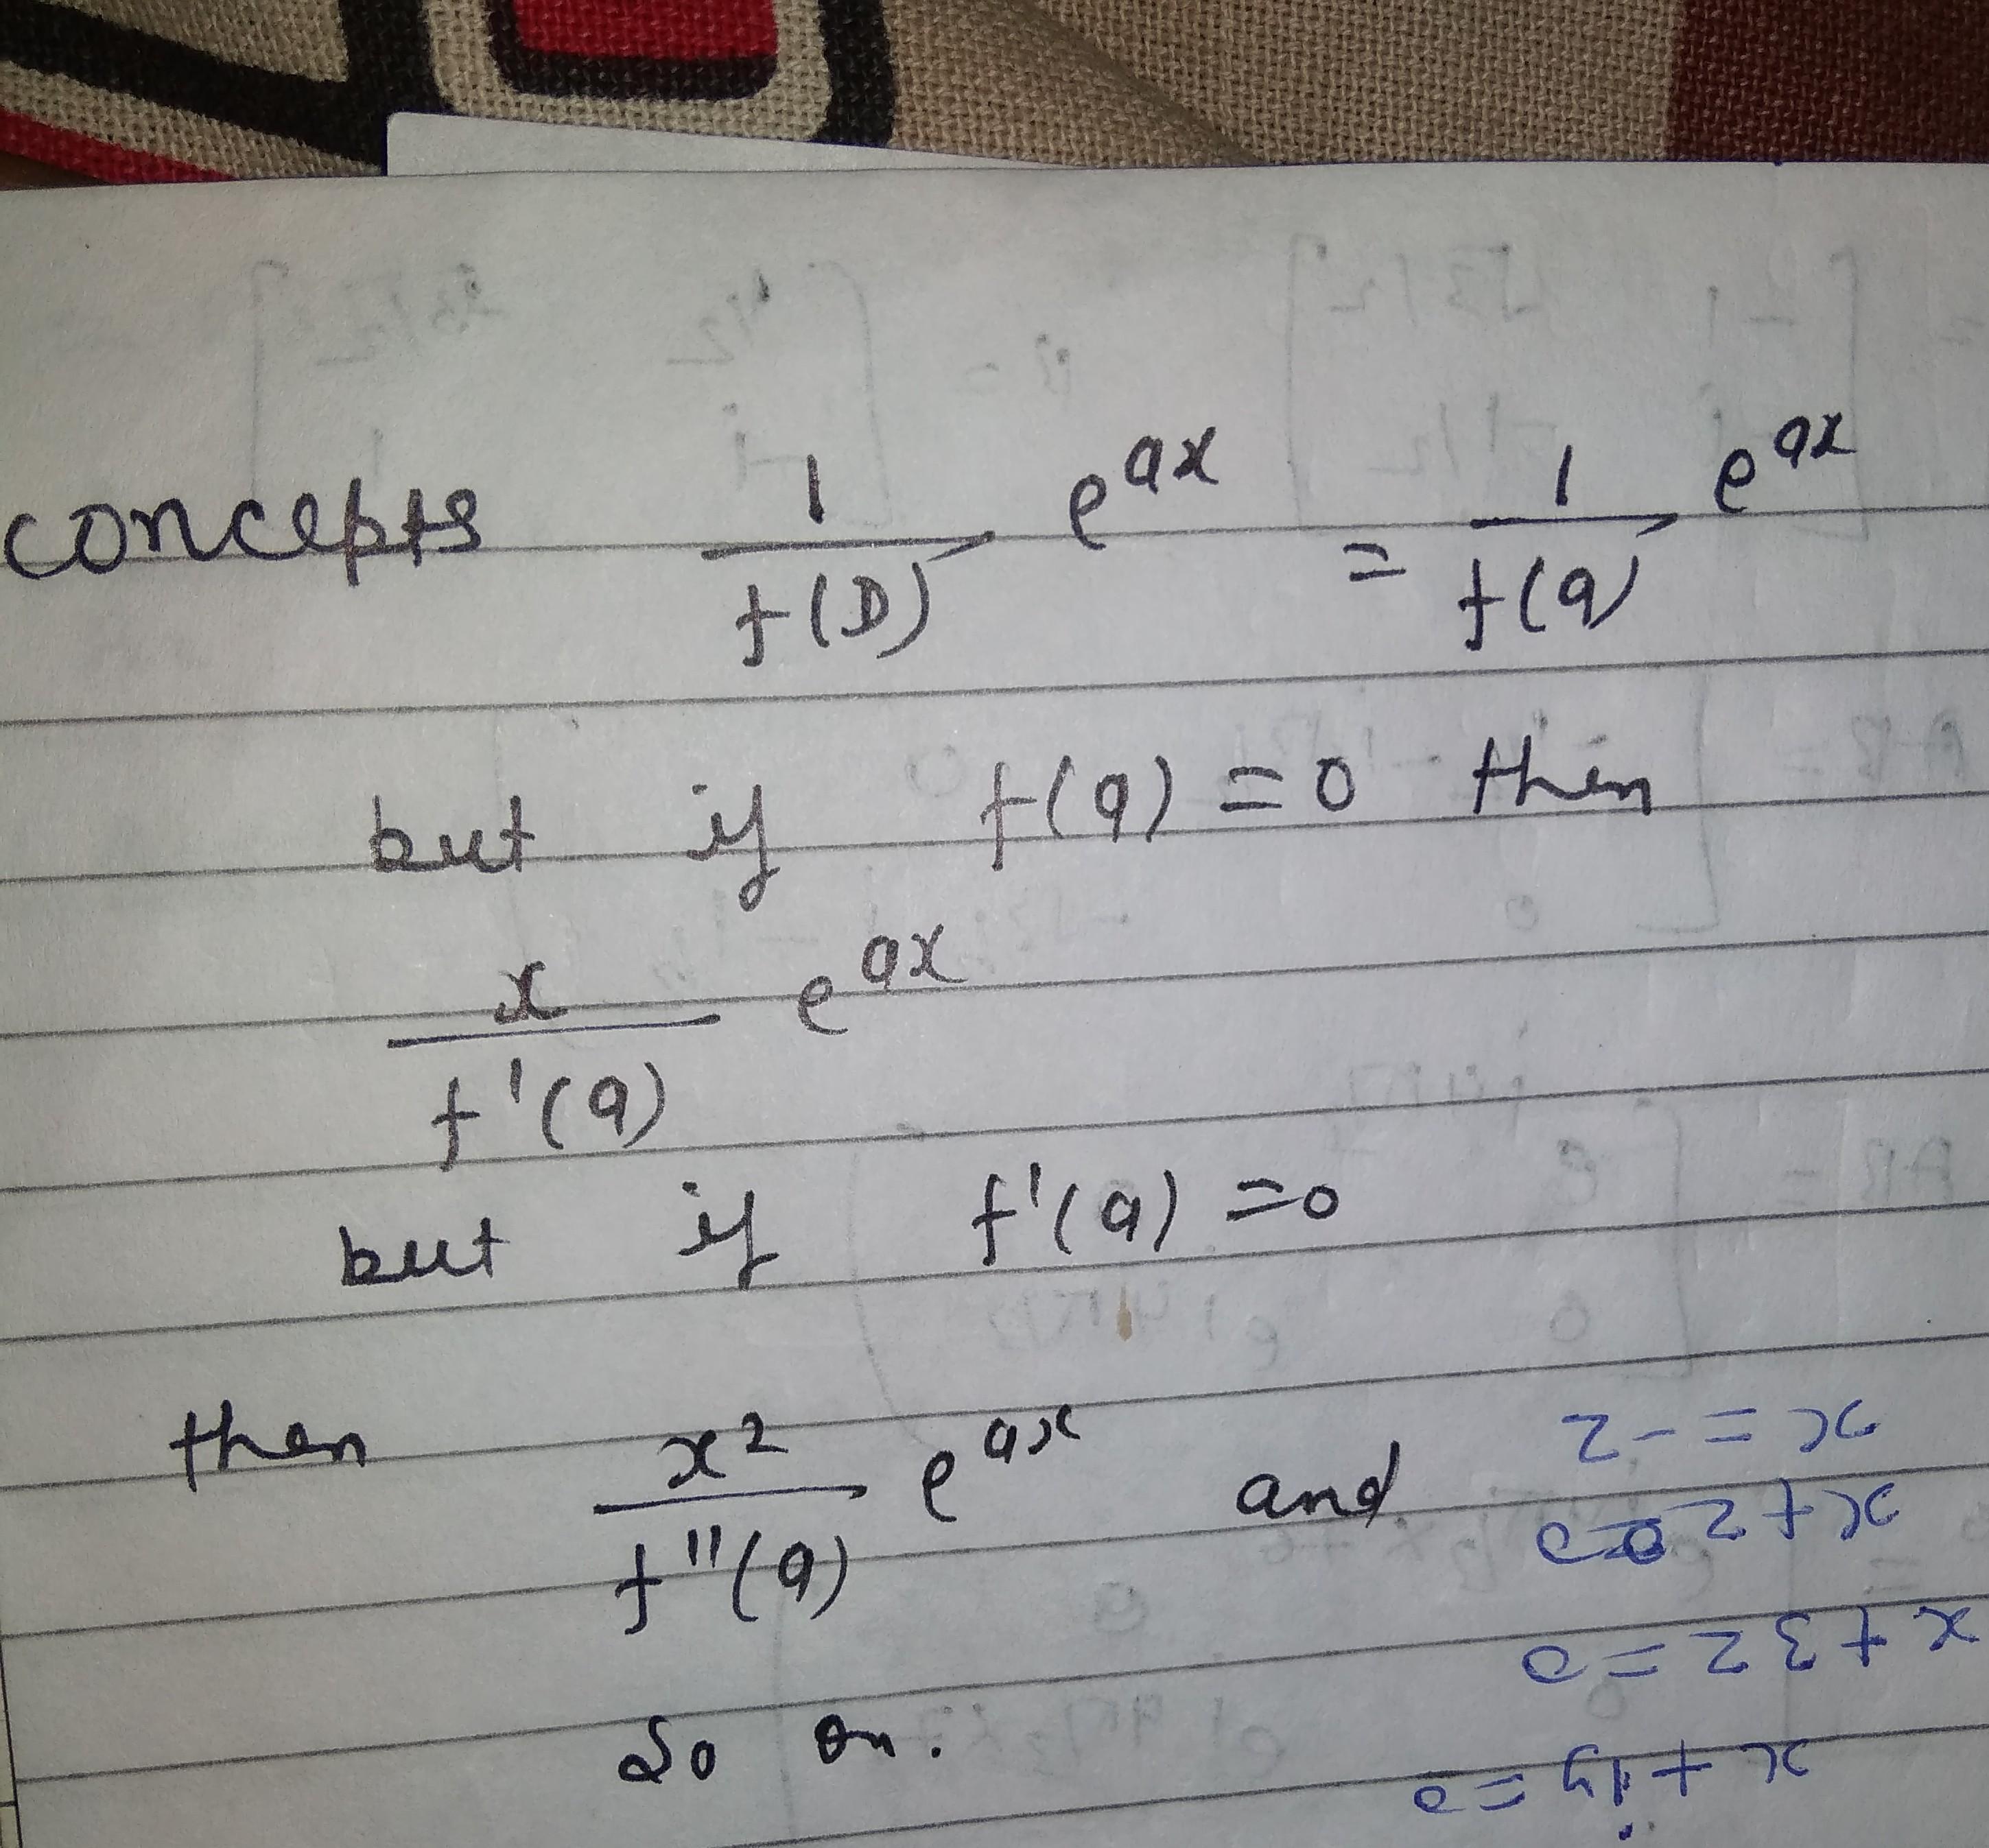 concepts 1/f(D) e^ax = 1/f(a) e^ax
but if f(a) = 0 then
x/f'(a) e^ax
but if f'(a) = 0
then x²/f''(a) e^ax and
so on.
x + iy = 0
x + 32 = 0
x + 2 = 0
x = -2